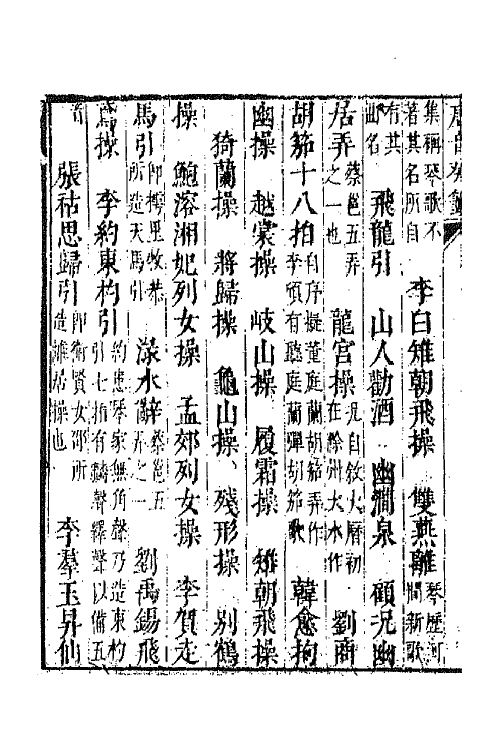 集稱琴歌不
著其名所自 李白雉朝飛操 雙燕離 琴歷河
間新歌
有其
曲名 飛龍引 山人勸酒 幽澗泉 顧況幽
居弄 蔡邕五弄
之一也 龍宮操 况自敘大曆初
在滁州大水作 劉商
胡笳十八拍 自序擬董庭蘭胡笳弄作
李頎有聽庭蘭彈胡笳歌 韓愈拘
幽操 越裳操 岐山操 履霜操 雉朝飛操
猗蘭操 將歸操 龜山操 殘形操 別鶴
操 鮑溶湘妃列女操 孟郊列女操 李賀走
馬引 即樗里牧恭
所造天馬引 淥水辭 蔡邕五
弄之一 劉禹錫飛
鳶操 李約東杓引 約患琴家無角聲乃造東杓
引七指有麟聲繹聲以備五
音 張祜思歸引 即衛賢女邵所
造離居操也 李羣玉昇仙